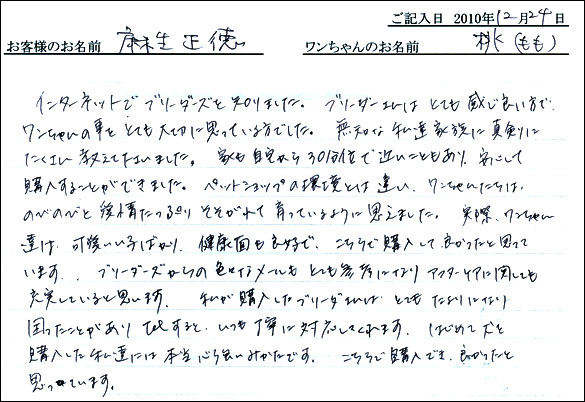 ご記入日 2010年12月24日
お客様のお名前 麻生 正徳 ワンちゃんのお名前 桃(もも)
インターネットでブリーダーズを知りました。ブリーダーさんはとても感じ良い方で、
ワンちゃんの事をとても大切に思っている方でした。無知な私達家族に真剣に
たくさん教えて下さいました。家も自宅から30分位で近いこともあり、安心して
購入することができました。ペットショップの環境とは違い、ワンちゃんたちは、
のびのびと愛情たっぷりそそがれて育っているように思えました。実際、ワンちゃん
達は、可愛いい子ばかり、健康面も良好で、こちらで購入して良かったと思って
います。ブリーダーズからの色々なメールもとても参考になりアフターケアに関しても
充実していると思います。私が購入したブリーダーさんは、とても
困ったことがありTELすると、いつも丁寧に対応してくれます。はじめて犬を
購入した私達には本当心強いみかたです。こちらで購入でき、良かったと
思っています。